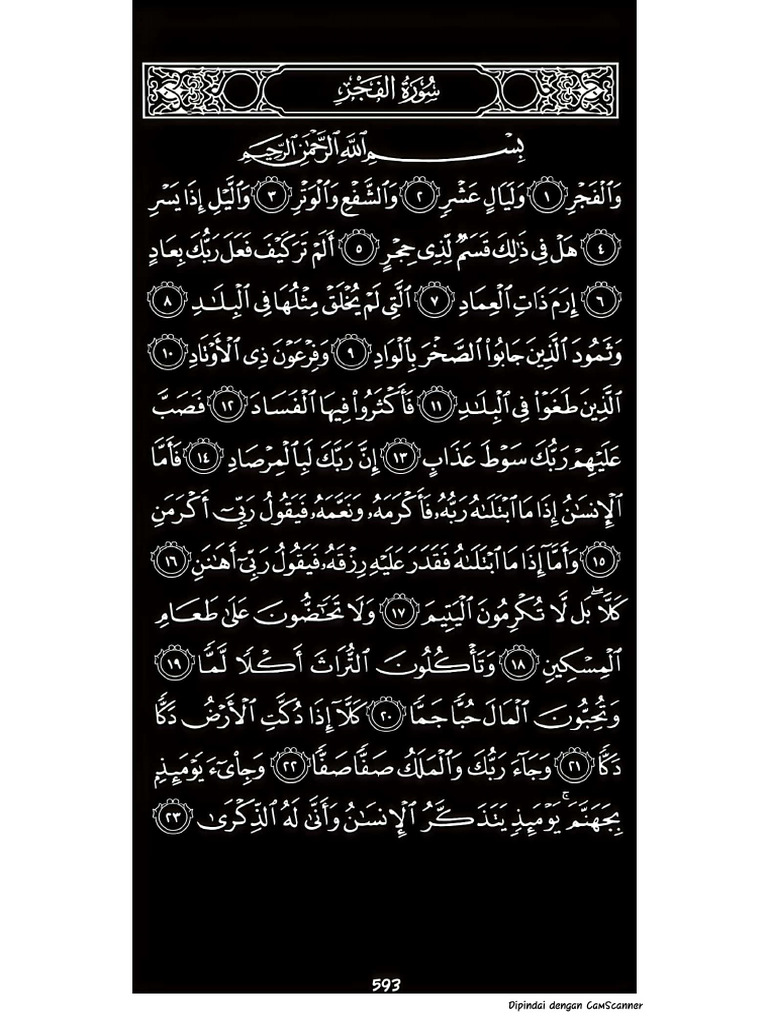 سُورَةُ الفَجْرِ
بِسْمِ اللَّهِ الرَّحْمَٰنِ الرَّحِيمِ
وَالْفَجْرِ ١ وَلَيَالٍ عَشْرٍ ٢ وَالشَّفْعِ وَالْوَتْرِ ٣ وَاللَّيْلِ إِذَا يَسْرِ
٤ هَلْ فِي ذَٰلِكَ قَسَمٌ لِّذِي حِجْرٍ ٥ أَلَمْ تَرَ كَيْفَ فَعَلَ رَبُّكَ بِعَادٍ
٦ إِرَمَ ذَاتِ الْعِمَادِ ٧ الَّتِي لَمْ يُخْلَقْ مِثْلُهَا فِي الْبِلَٰدِ ٨
وَثَمُودَ الَّذِينَ جَابُوا الصَّخْرَ بِالْوَادِ ٩ وَفِرْعَوْنَ ذِي الْأَوْتَادِ ١٠
الَّذِينَ طَغَوْا فِي الْبِلَٰدِ ١١ فَأَكْثَرُوا فِيهَا الْفَسَادَ ١٢ فَصَبَّ
عَلَيْهِمْ رَبُّكَ سَوْطَ عَذَابٍ ١٣ إِنَّ رَبَّكَ لَبِالْمِرْصَادِ ١٤ فَأَمَّا
الْإِنسَٰنُ إِذَا مَا ابْتَلَىٰهُ رَبُّهُۥ فَأَكْرَمَهُۥ وَنَعَّمَهُۥ فَيَقُولُ رَبِّيٓ أَكْرَمَنِ
١٥ وَأَمَّآ إِذَا مَا ابْتَلَىٰهُ فَقَدَرَ عَلَيْهِ رِزْقَهُۥ فَيَقُولُ رَبِّيٓ أَهَٰنَنِ ١٦
كَلَّا ۖ بَل لَّا تُكْرِمُونَ الْيَتِيمَ ١٧ وَلَا تَحَٰٓضُّونَ عَلَىٰ طَعَامِ
الْمِسْكِينِ ١٨ وَتَأْكُلُونَ التُّرَاثَ أَكْلًا لَّمًّا ١٩
وَتُحِبُّونَ الْمَالَ حُبًّا جَمًّا ٢٠ كَلَّآ إِذَا دُكَّتِ الْأَرْضُ دَكًّا
دَكًّا ٢١ وَجَآءَ رَبُّكَ وَالْمَلَكُ صَفًّا صَفًّا ٢٢ وَجِا۟يٓءَ يَوْمَئِذٍۭ
بِجَهَنَّمَ ۚ يَوْمَئِذٍ يَتَذَكَّرُ الْإِنسَٰنُ وَأَنَّىٰ لَهُ الذِّكْرَىٰ ٢٣
593
Dipindai dengan CamScanner